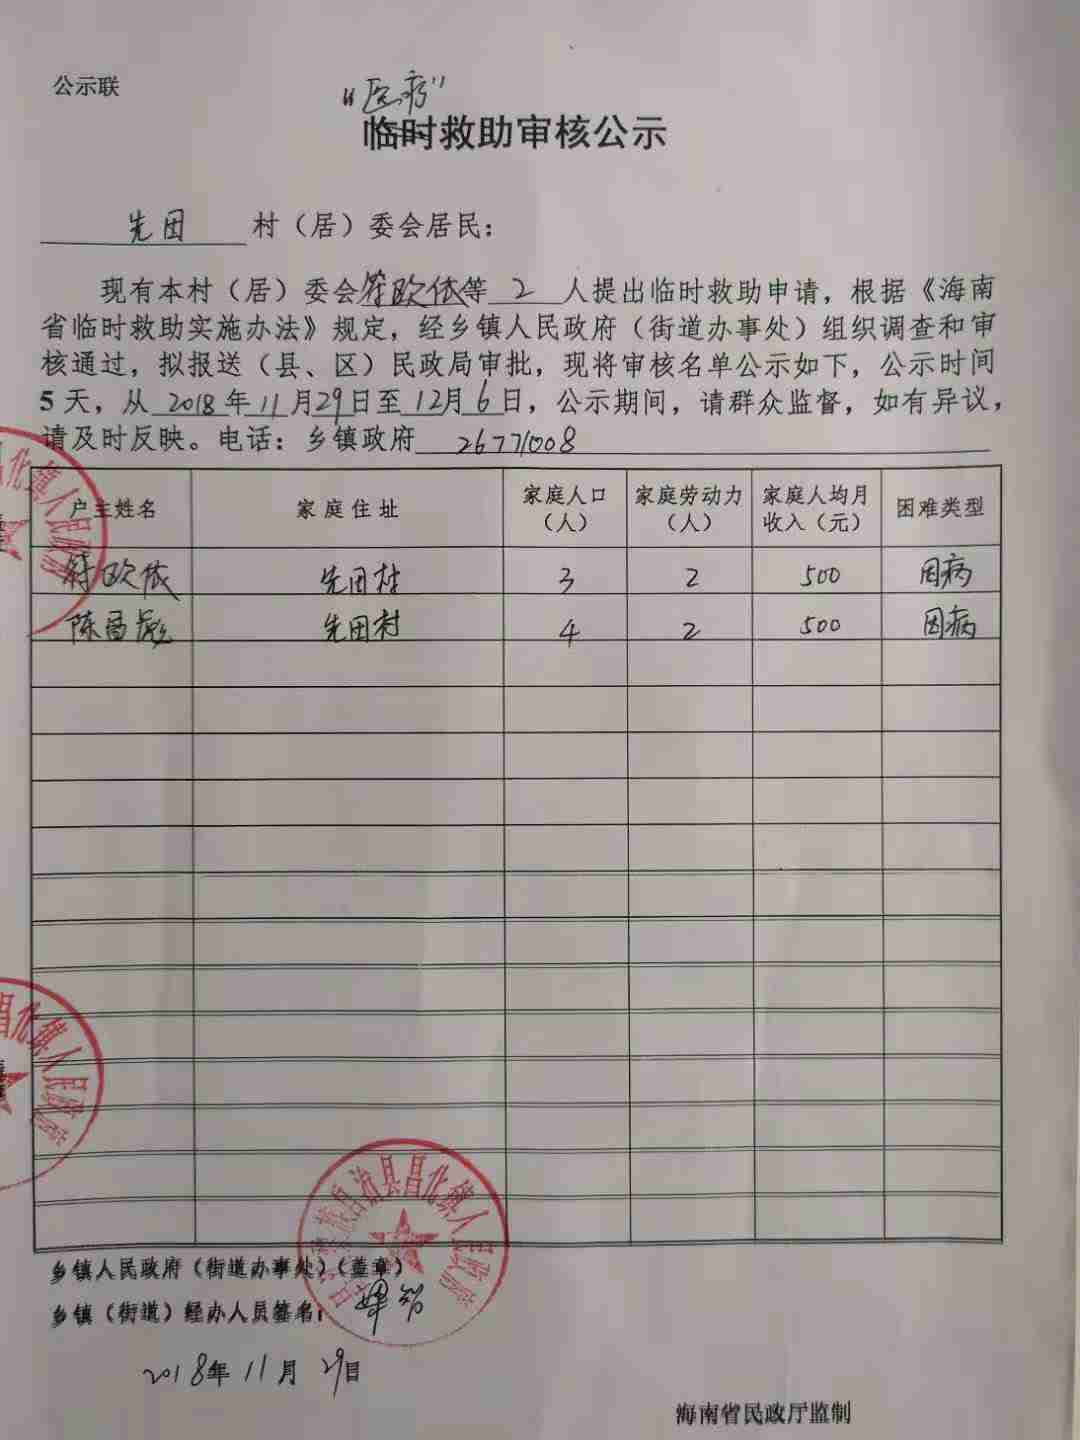 公示联
“医疗”
临时救助审核公示
先团 村（居）委会居民：
现有本村（居）委会符欧依等 2 人提出临时救助申请，根据《海南
省临时救助实施办法》规定，经乡镇人民政府（街道办事处）组织调查和审
核通过，拟报送（县、区）民政局审批，现将审核名单公示如下，公示时间
5 天，从 2018 年 11 月 29 日至 12 月 6 日，公示期间，请群众监督，如有异议，
请及时反映。电话：乡镇政府 26771008
户主姓名 家庭住址 家庭人口（人） 家庭劳动力（人） 家庭人均月收入（元） 困难类型
符欧依 先团村 3 2 500 因病
陈昌彪 先团村 4 2 500 因病
昌化镇人民政府
昌化镇人民政府
自治县昌化镇人民政府
乡镇人民政府（街道办事处）（盖章）
乡镇（街道）经办人员签名：
2018年 11月 29日
海南省民政厅监制